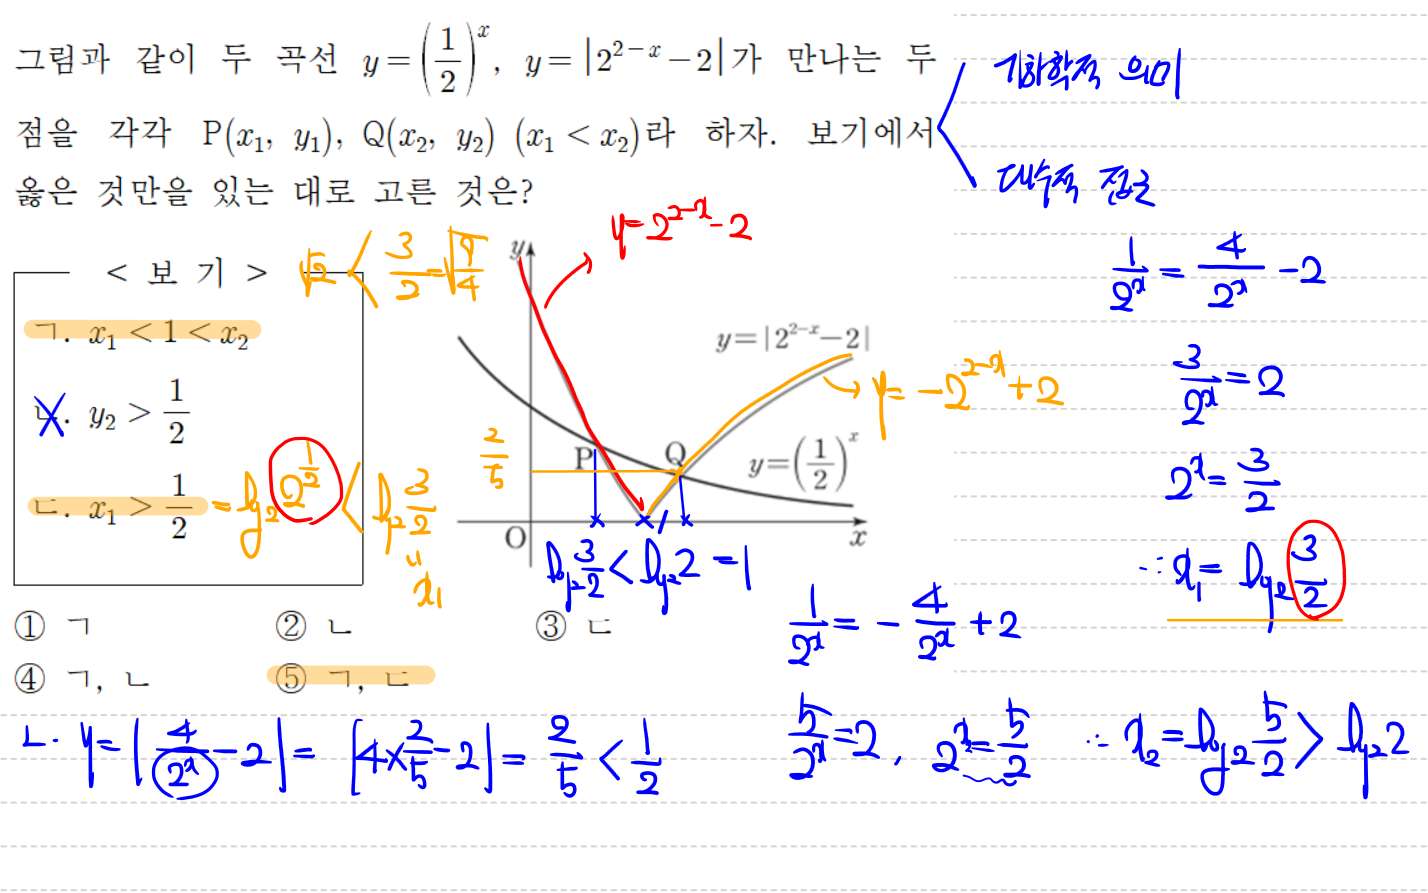 그림과 같이 두 곡선 y=(1/2)^x, y=|2^(2-x)-2|가 만나는 두
점을 각각 P(x₁, y₁), Q(x₂, y₂) (x₁ < x₂)라 하자. 보기에서
옳은 것만을 있는 대로 고른 것은?
기하학적 의미
대수적 접근
< 보 기 >
ㄱ. x₁ < 1 < x₂
ㄴ. y₂ > 1/2
ㄷ. x₁ > 1/2 = log₂ 2^(1/2) < log₂ 3/2
" x₁
√2 < 3/2 = √(9/4)
y
y=2^(2-x)-2
y=|2^(2-x)-2|
y=-2^(2-x)+2
2/5
P
Q
y=(1/2)^x
O
1
x
log₂ 3/2 < log₂ 2 = 1
1/2^x = 4/2^x - 2
3/2^x = 2
2^x = 3/2
∴ x₁ = log₂ 3/2
① ㄱ
② ㄴ
③ ㄷ
④ ㄱ, ㄴ
⑤ ㄱ, ㄷ
1/2^x = - 4/2^x + 2
5/2^x = 2, 2^x = 5/2 ∴ x₂ = log₂ 5/2 > log₂ 2
ㄴ. y = |4/2^x - 2| = |4×2/5 - 2| = 2/5 < 1/2